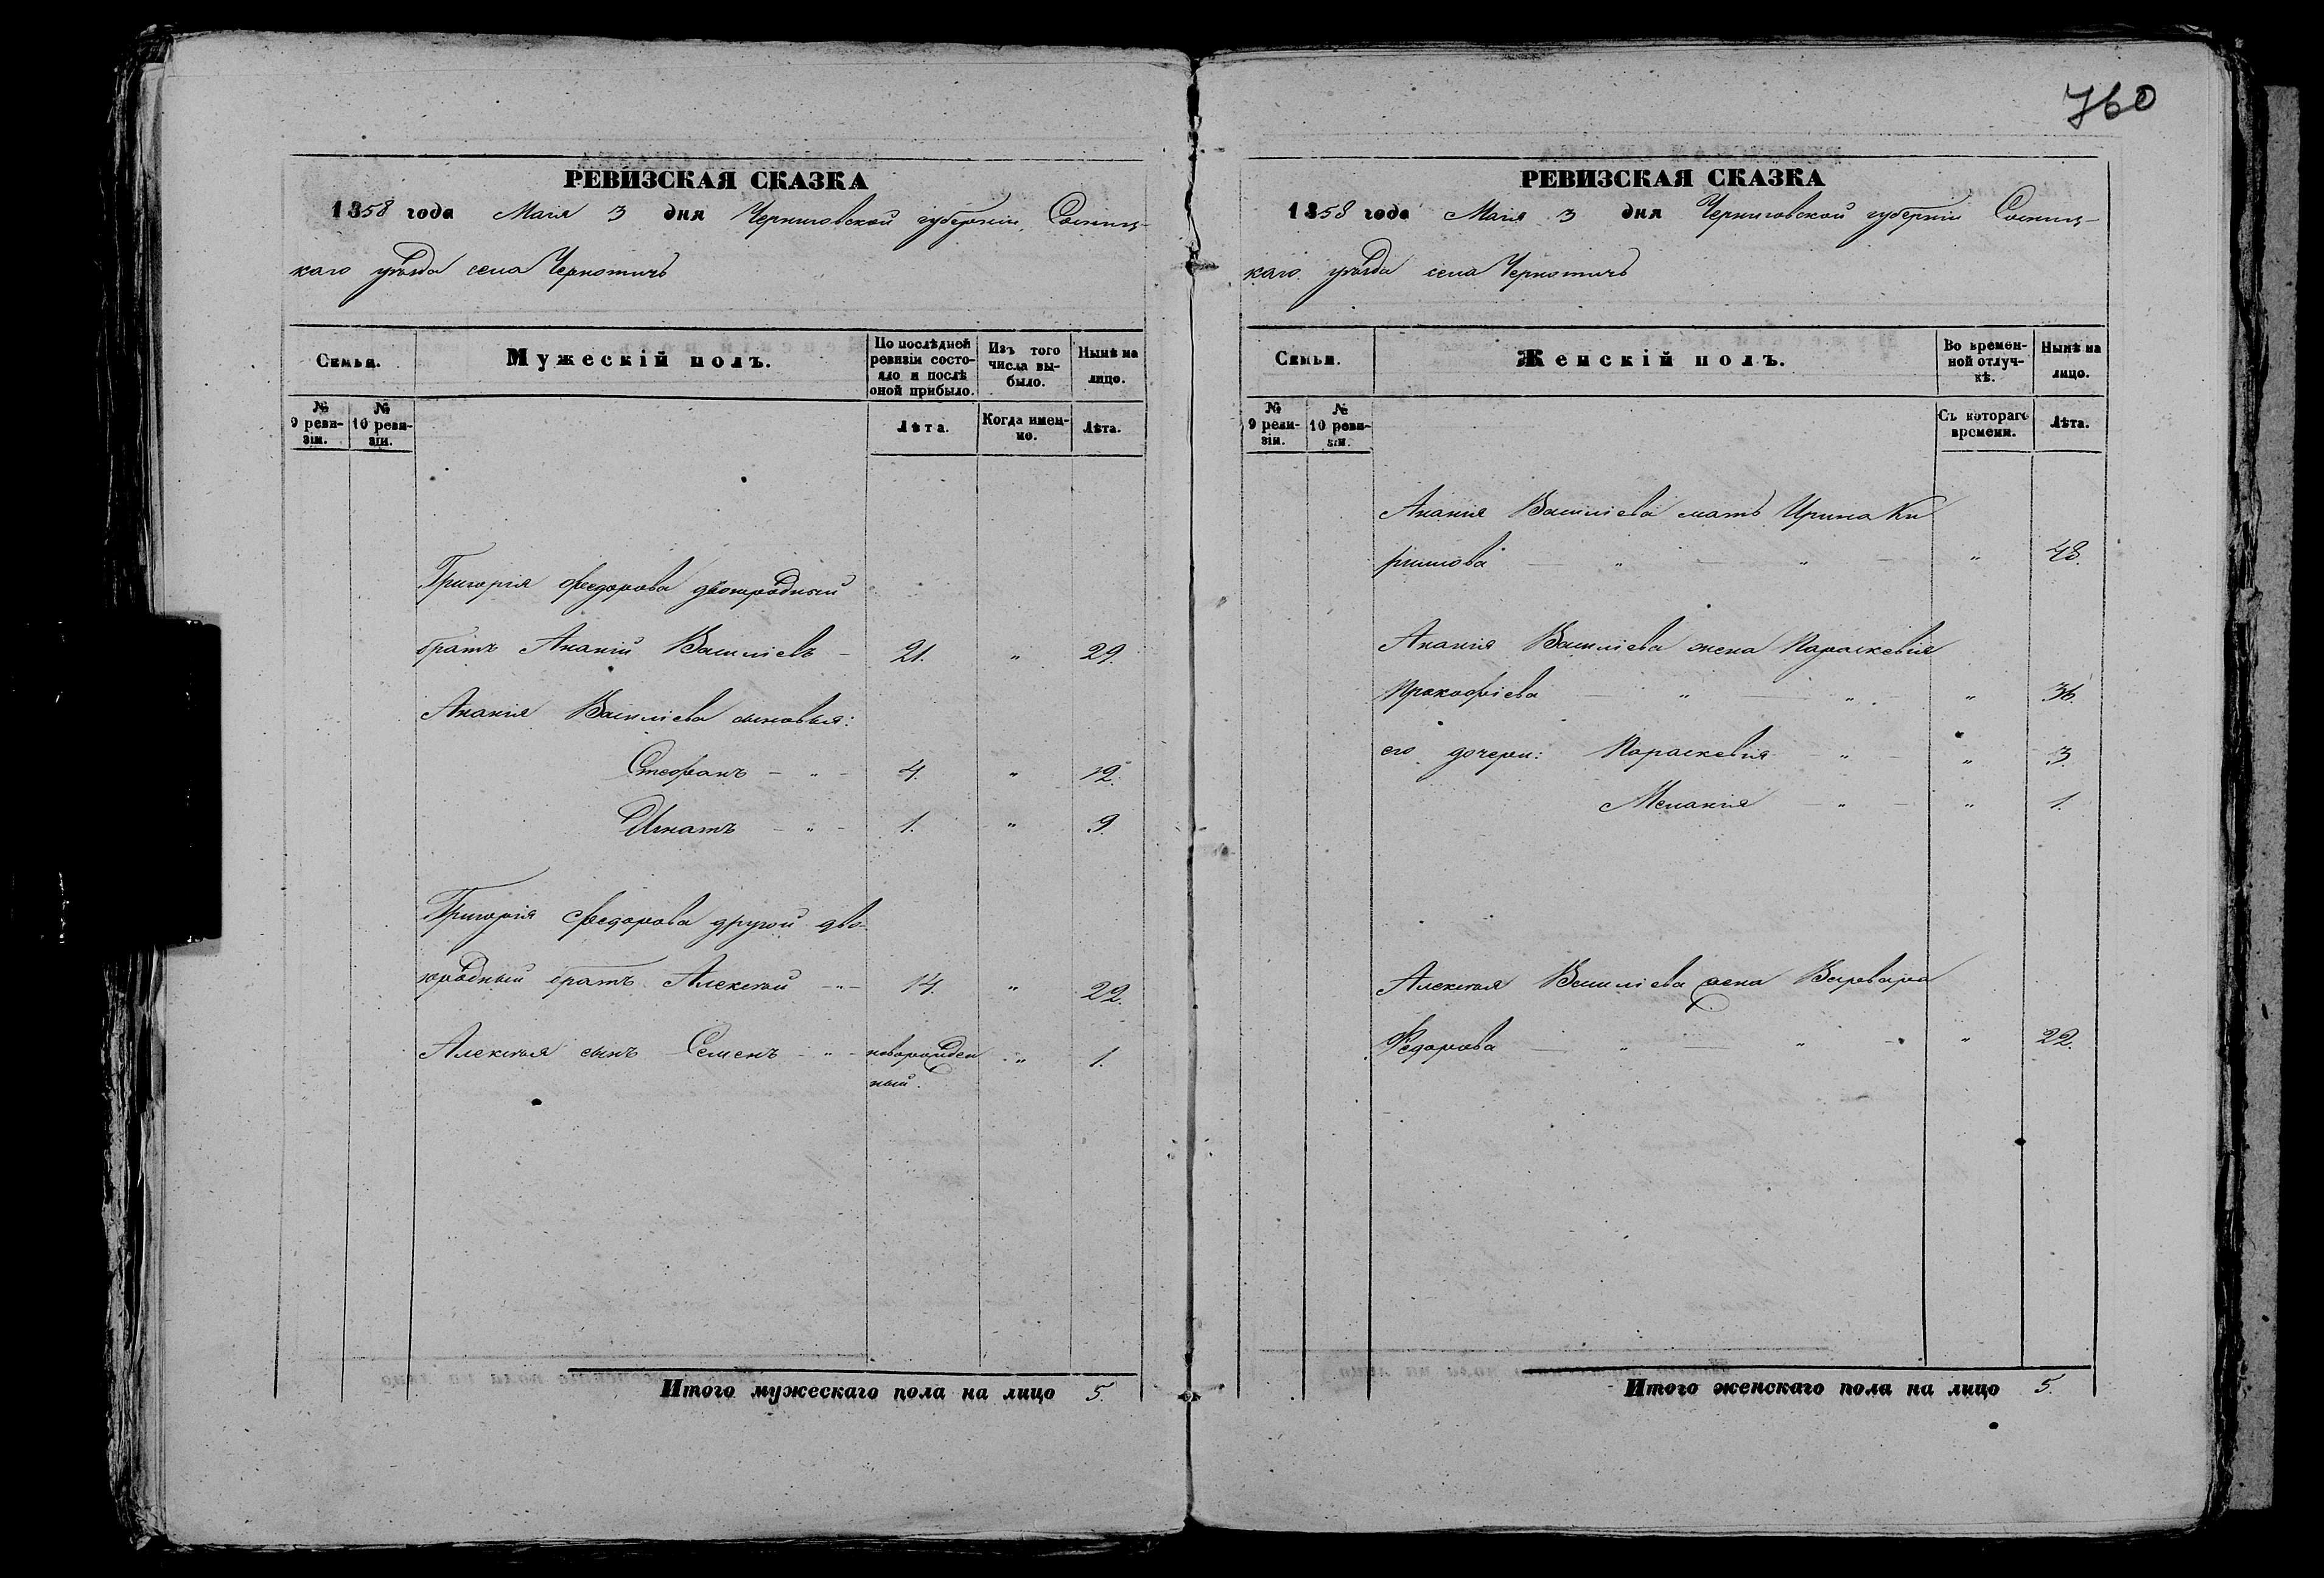 760
РЕВИЗСКАЯ СКАЗКА
1858 года Мая 3 дня Черниговской губерніи, Сосниц-
каго уѣзда села Чернотичъ
Семьи.
Мужескій полъ.
По послѣдней ревизіи состо-яло и послѣ оной прибыло.
Изъ того числа вы-было.
Нынѣ на лицо.
№ 9 реви-зіи.
№ 10 реви-зіи.
Лѣта.
Когда имен-но.
Лѣта.
Григорія Федорова двоюродный
братъ Ананій Василіевъ - 21. " 29.
Ананія Василіева сыновья:
Стефанъ - " - 4. " 12.
Игнатъ - " - 1. " 9.
Григорія Федорова другой дво-
юродный братъ Алексѣй - " - 14. " 22.
Алексѣя сынъ Семенъ - " - новорожден " 1.
ный.
Итого мужескаго пола на лицо 5.
РЕВИЗСКАЯ СКАЗКА
1858 года Мая 3 дня Черниговской губерніи Сосниц-
каго уѣзда села Чернотичъ
Семьи.
Женскій полъ.
Во времен-ной отлуч-кѣ.
Нынѣ на лицо.
№ 9 реви-зіи.
№ 10 реви-зіи.
Съ котораго времени.
Лѣта.
Ананія Василіева мать Ирина Ки
" " " 48.
Ананія Василіева жена Параскевія
Прокофіева " " " 36.
его дочери: Параскевія " " 3.
Меланія " " 1.
Алексѣя Василіева жена Варвара
Федорова " " " 22.
Итого женскаго пола на лицо 5.